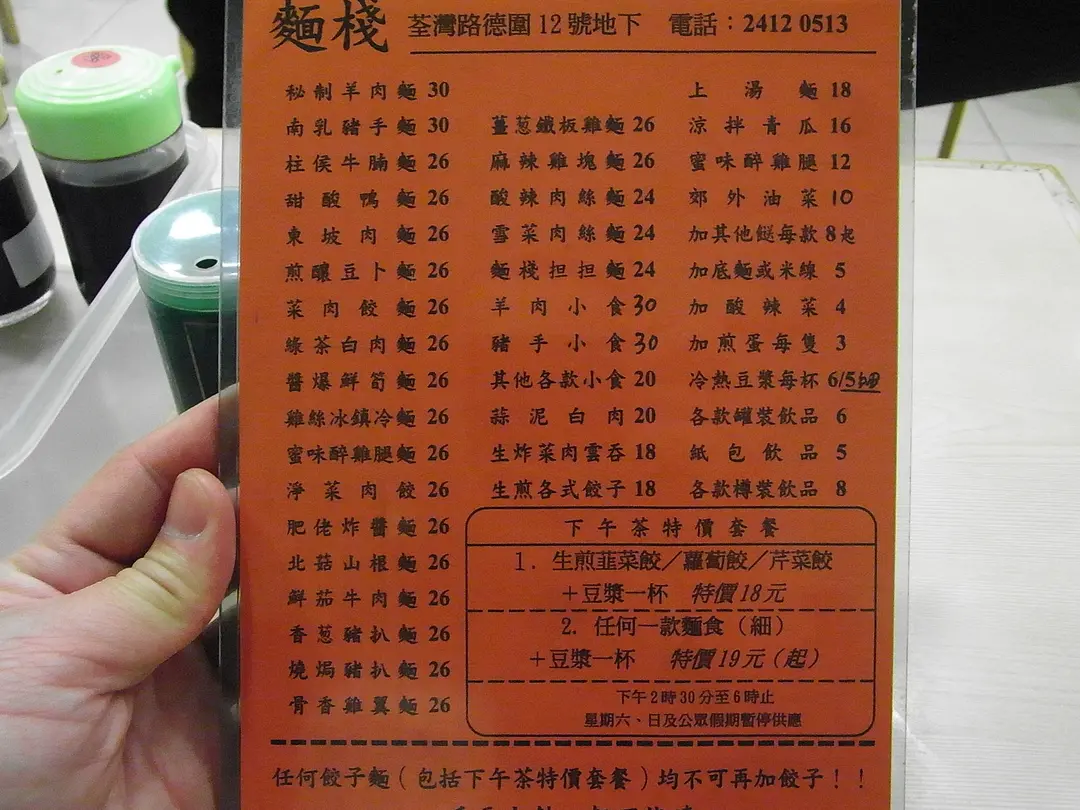 麵棧 荃灣路德圍12號地下 電話：2412 0513
秘制羊肉麵 30
南乳豬手麵 30
柱侯牛腩麵 26
甜酸鴨麵 26
東坡肉麵 26
煎釀豆卜麵 26
菜肉餃麵 26
綠茶白肉麵 26
醬爆鮮筍麵 26
雞絲冰鎮冷麵 26
蜜味醉雞腿麵 26
淨菜肉餃 26
肥佬炸醬麵 26
北菇山根麵 26
鮮茄牛肉麵 26
香葱豬扒麵 26
燒焗豬扒麵 26
骨香雞翼麵 26
薑葱鐵板雞麵 26
麻辣雞塊麵 26
酸辣肉絲麵 24
雪菜肉絲麵 24
麵棧担担麵 24
羊肉小食 30
豬手小食 30
其他各款小食 20
蒜泥白肉 20
生炸菜肉雲吞 18
生煎各式餃子 18
上湯麵 18
涼拌青瓜 16
蜜味醉雞腿 12
郊外油菜 10
加其他餸每款 8起
加底麵或米線 5
加酸辣菜 4
加煎蛋每隻 3
冷熱豆漿每杯 6/5
各款罐裝飲品 6
紙包飲品 5
各款樽裝飲品 8
下午茶特價套餐
1. 生煎韮菜餃／蘿蔔餃／芹菜餃
＋豆漿一杯 特價18元
2. 任何一款麵食（細）
＋豆漿一杯 特價19元（起）
下午2時30分至6時止
星期六、日及公眾假期暫停供應
任何餃子麵（包括下午茶特價套餐）均不可再加餃子！！